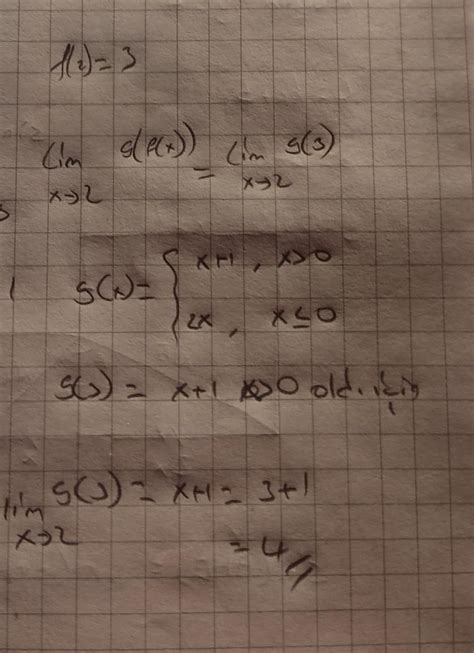 f(2) = 3
lim x→2 g(f(x)) = lim x→2 g(3)
g(x) = { x+1 , x>0
2x , x≤0
g(3) = x+1 x>0 old. için
lim x→2 g(3) = x+1 = 3+1
= 4 //